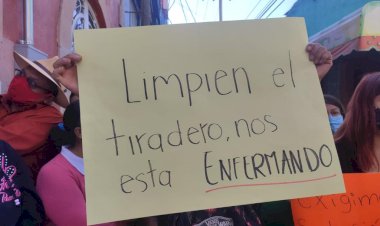 Limpien el
tiradero, nos
esta ENFERMANDO
Exigim